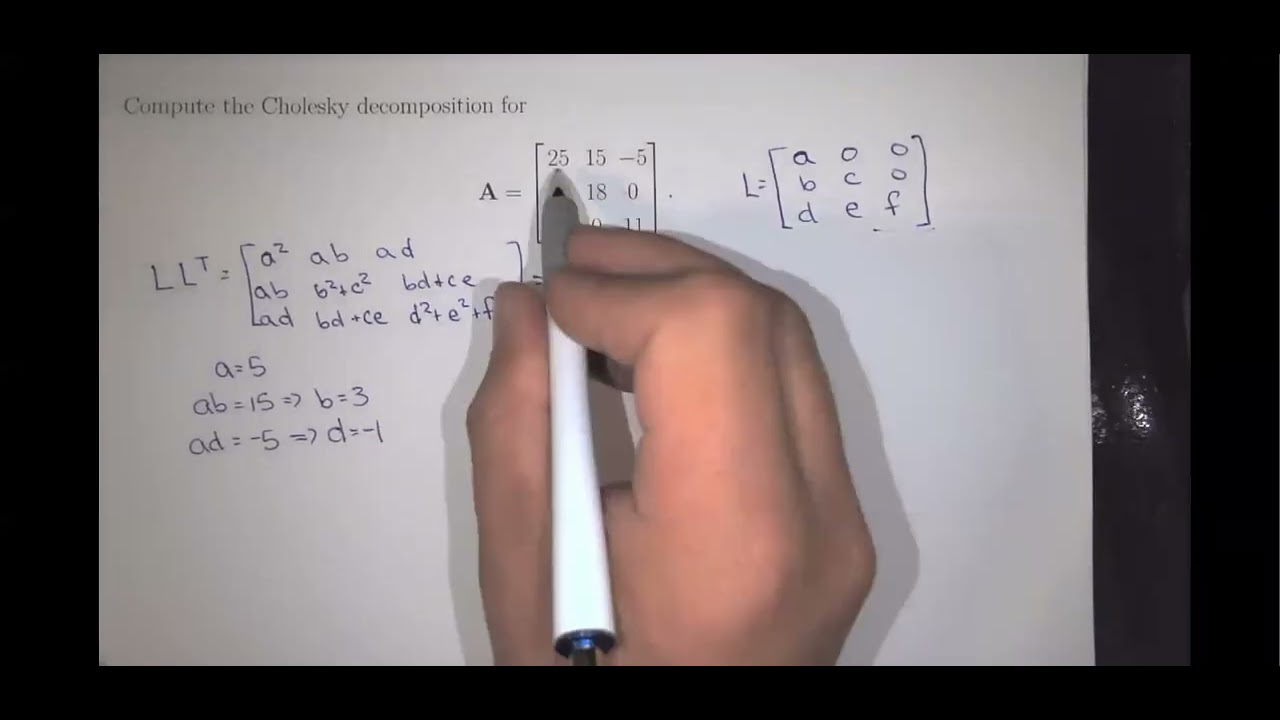 Compute the Cholesky decomposition for
A = [25 15 −5
18 0
0 11] .
L = [a 0 0
b c 0
d e f]
LLᵀ = [a² ab ad
ab b²+c² bd+ce
ad bd+ce d²+e²+f] =
a=5
ab=15 => b=3
ad=-5 => d=-1